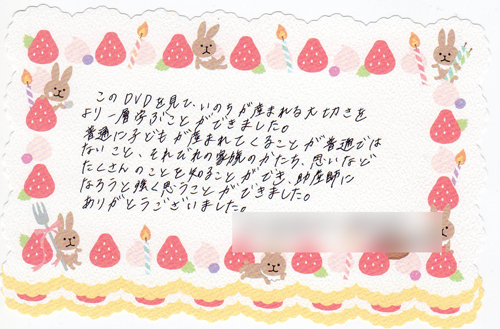 このDVDを見て、いのちが産まれる大切さを
より一層学ぶことができました。
普通に子どもが産まれてくることが普通では
ないこと、それぞれの家族のかたち、思いなど
たくさんのことを知ることができ、助産師に
なろうと強く思うことができました。
ありがとうございました。